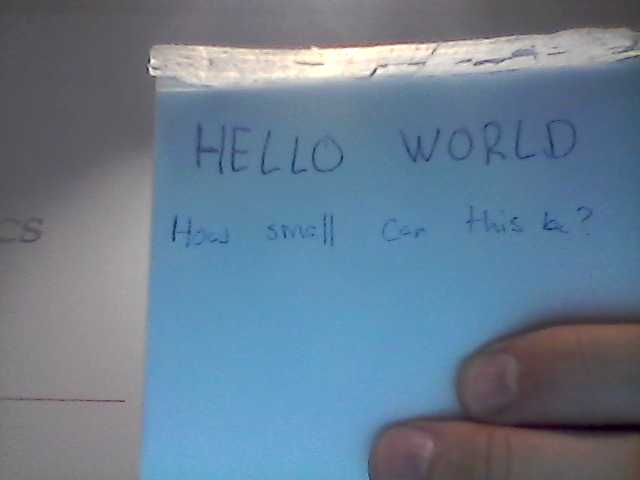 HELLO WORLD
How small can this be?
CS